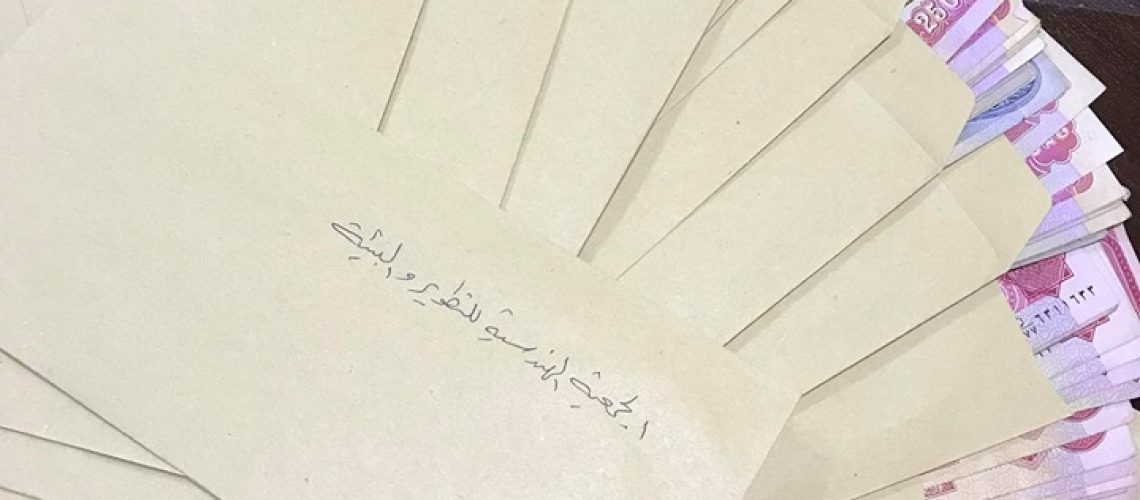 الجمعية الهندسية للتطوير والبيئة
250
٦٣١١٦٣٣
٧٧